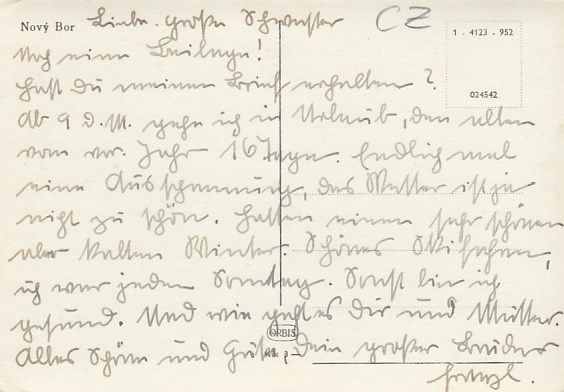 Nový Bor
CZ
1 - 4123 - 952
024542
Liebe große Schwester
Noch eine Beilage!
Hast Du meinen Brief erhalten?
Ab 9 d.M. gehe ich in Urlaub, den alten
vom vor. Jahr 16 Tage. Endlich mal
eine Ausspannung, das Wetter ist ja
nicht zu schön. Hatten einen sehr schönen
aber kalten Winter. Schönes Skifahren,
ich war jeden Sonntag. Sonst bin ich
gesund. Und wie geht es Dir und Mutter.
Alles Schöne und Grüße, Dein großer Bruder
ORBIS